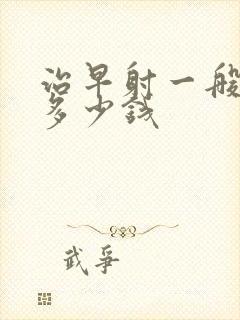 治早射一般
多少钱
武争